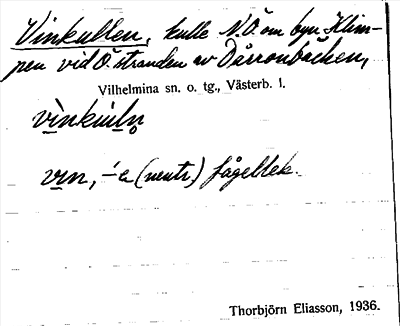 Vinkullen, kulle N.Ö. om byn Klim-
pen vid Ö. stranden av Dårronbäcken,
Vilhelmina sn. o. tg., Västerb. l.
vin, -́e (neutr.) fågellek.
Thorbjörn Eliasson, 1936.